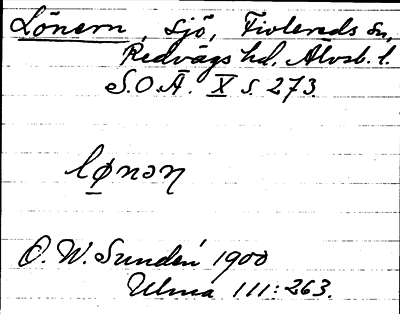 Lönern, sjö, Tivlereds sn,
Redvägs hd. Älvsb. l.
S.O.Ä. X s. 273.
lø̠nən
O. W. Sundén 1900
Ulma 111:263.